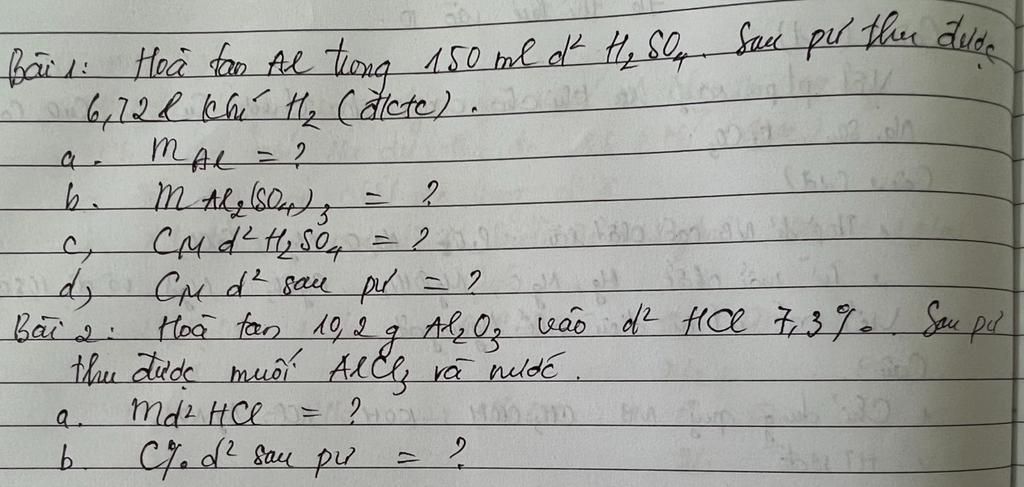 Bài 1: Hoà tan Al trong 150 ml d² H₂SO₄. Sau pư thu được
6,72 l khí H₂ (đktc).
a. mAl = ?
b. mAl₂(SO₄)₃ = ?
c, CM d² H₂SO₄ = ?
d, CM d² sau pư = ?
Bài 2: Hoà tan 10,2 g Al₂O₃ vào d² HCl 7,3%. Sau pư
thu được muối AlCl₃ và nước.
a. md² HCl = ?
b. C% d² sau pư = ?